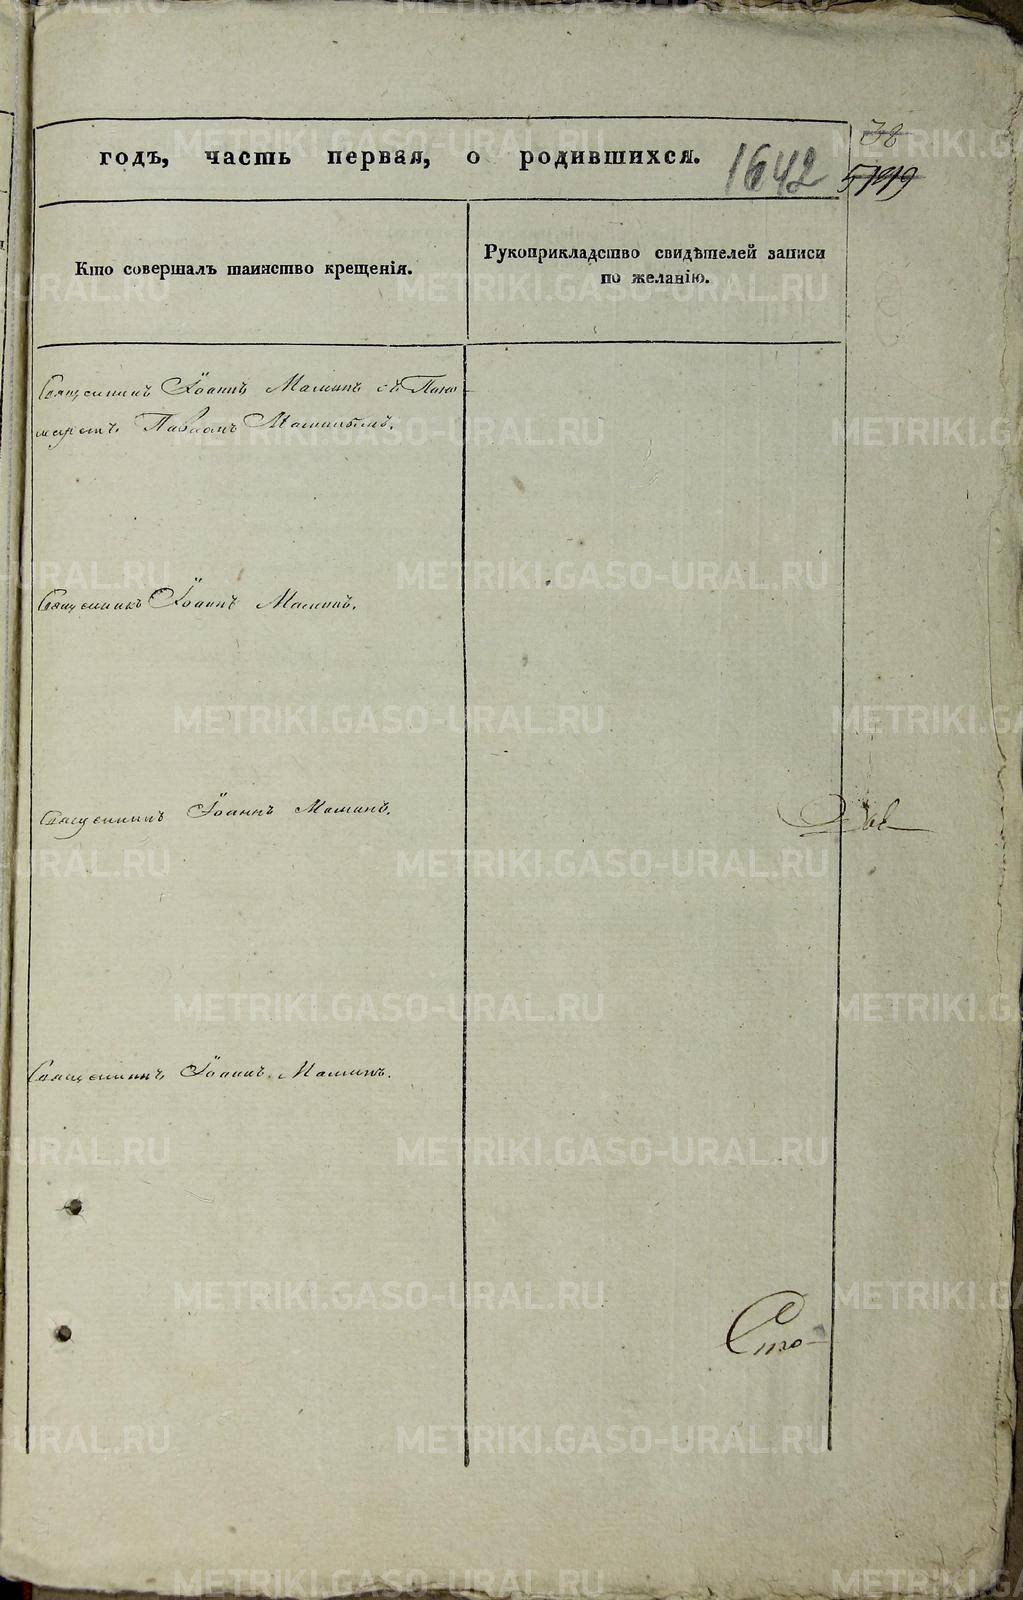 годъ, часть первая, о родившихся.
1642
38
Кто совершалъ таинство крещенія.
Рукоприкладство свидѣтелей записи
по желанію.
Священникъ Іоаннъ Маминъ съ Поно
марёмъ Павломъ Маминымъ.
Священникъ Іоаннъ Маминъ.
Священникъ Іоаннъ Маминъ.
Священникъ Іоаннъ Маминъ.
Сто
METRIKI.GASO-URAL.RU